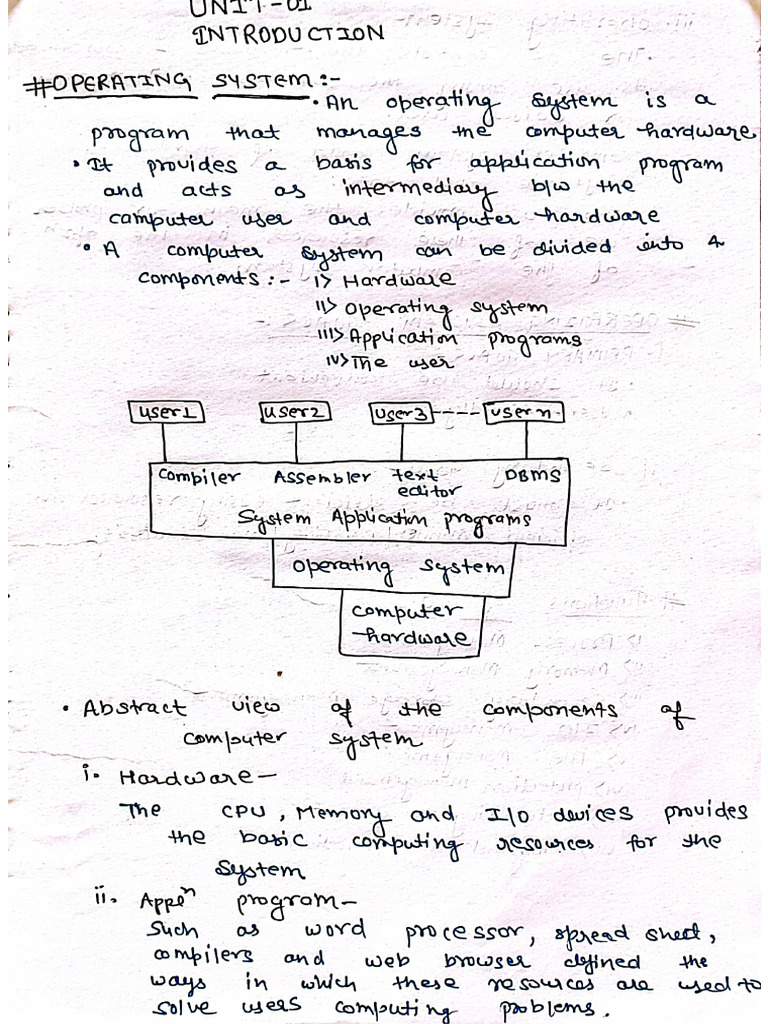 UNIT-01
INTRODUCTION
#OPERATING SYSTEM:-
• An operating system is a
program that manages the computer hardware
• It provides a basis for application program
and acts as intermediary b/w the
computer user and computer hardware
• A computer system can be divided into 4
components:- i> Hardware
ii> Operating system
iii> Application programs
iv> The user
user1 user2 user3 ---- user n.
Compiler Assembler text editor DBMS
System Application programs
operating system
computer
hardware
• Abstract view of the components of
computer system
i. Hardware-
The CPU, Memory and I/O devices provides
the basic computing resources for the
system
ii. Appⁿ program-
Such as word processor, spread sheet,
compilers and web browser defined the
ways in which these resources are used to
solve users computing problems.